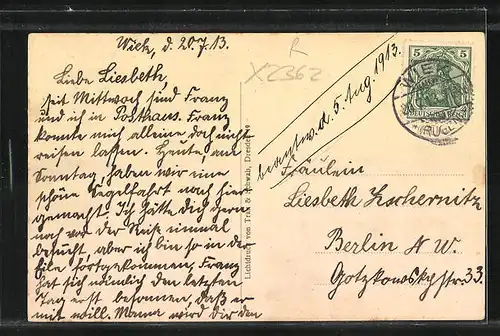 Wiek, d. 20.7.13.
Liebe Liesbeth
seit Mittwoch sind Franz
und ich in Posthaus. Franz
konnte mich alleine doch nicht
reisen lassen. Heute, am
Sonntag, haben wir eine
schöne Segelfahrt nach hier
gemacht. Ich hätte dich gern
noch vor der Reise einmal
besucht, aber ich bin so in der
Eile fortgekommen, Franz
hat sich nämlich den letzten
Tag erst besonnen, daß er
mit will. Mama wird dir den
R
X2362
beantw. d. 5. Aug. 1913.
Lichtdruck von Trau & Schwab, Dresden
5 5
DEUTSCHES REICH
WIEK
(RÜGEN)
Fräulein
Liesbeth Zschernitz
Berlin N.W.
Gotzkowskystr. 33.